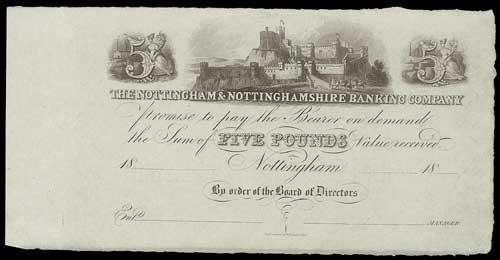 5 5
THE NOTTINGHAM & NOTTINGHAMSHIRE BANKING COMPANY
promise to pay the Bearer on demand
the Sum of FIVE POUNDS Value received
18 Nottingham 18
By order of the Board of Directors
Ent.d MANAGER